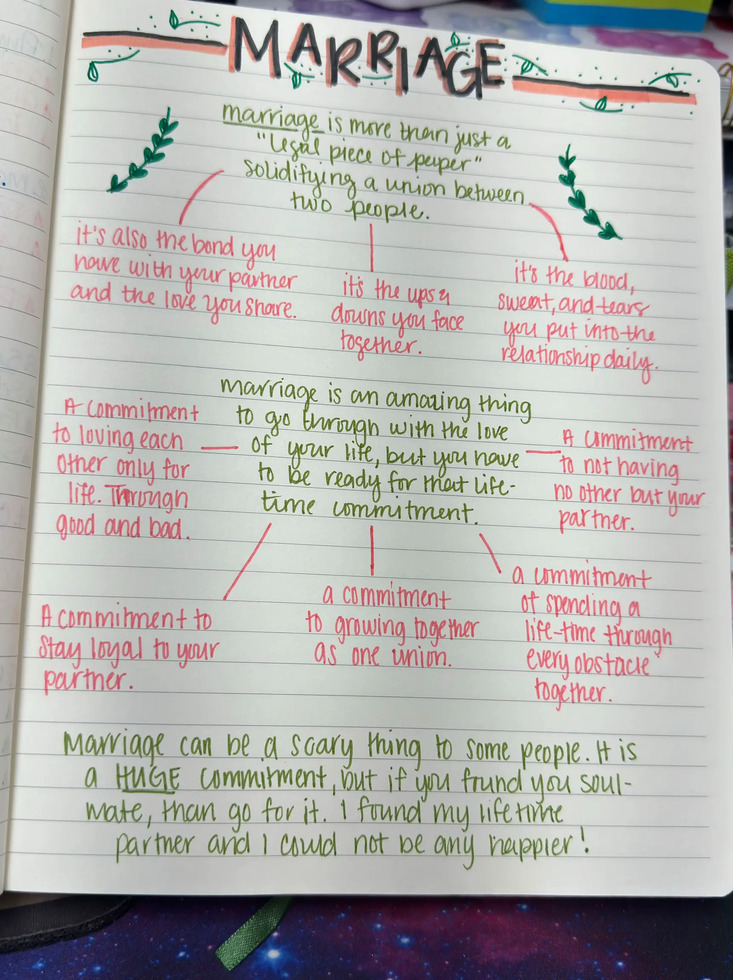 MARRIAGE
marriage is more than just a
"legal piece of paper"
solidifying a union between
two people.
it's also the bond you
have with your partner
and the love you share.
it's the ups &
downs you face
together.
it's the blood,
sweat, and tears
you put into the
relationship daily.
marriage is an amazing thing
to go through with the love
of your life, but you have
to be ready for that life-
time commitment.
A commitment
to loving each
other only for
life. Through
good and bad.
A commitment
to not having
no other but your
partner.
A commitment to
stay loyal to your
partner.
a commitment
to growing together
as one union.
a commitment
of spending a
life-time through
every obstacle
together.
Marriage can be a scary thing to some people. It is
a HUGE commitment, but if you found you soul-
mate, than go for it. I found my lifetime
partner and I could not be any happier!